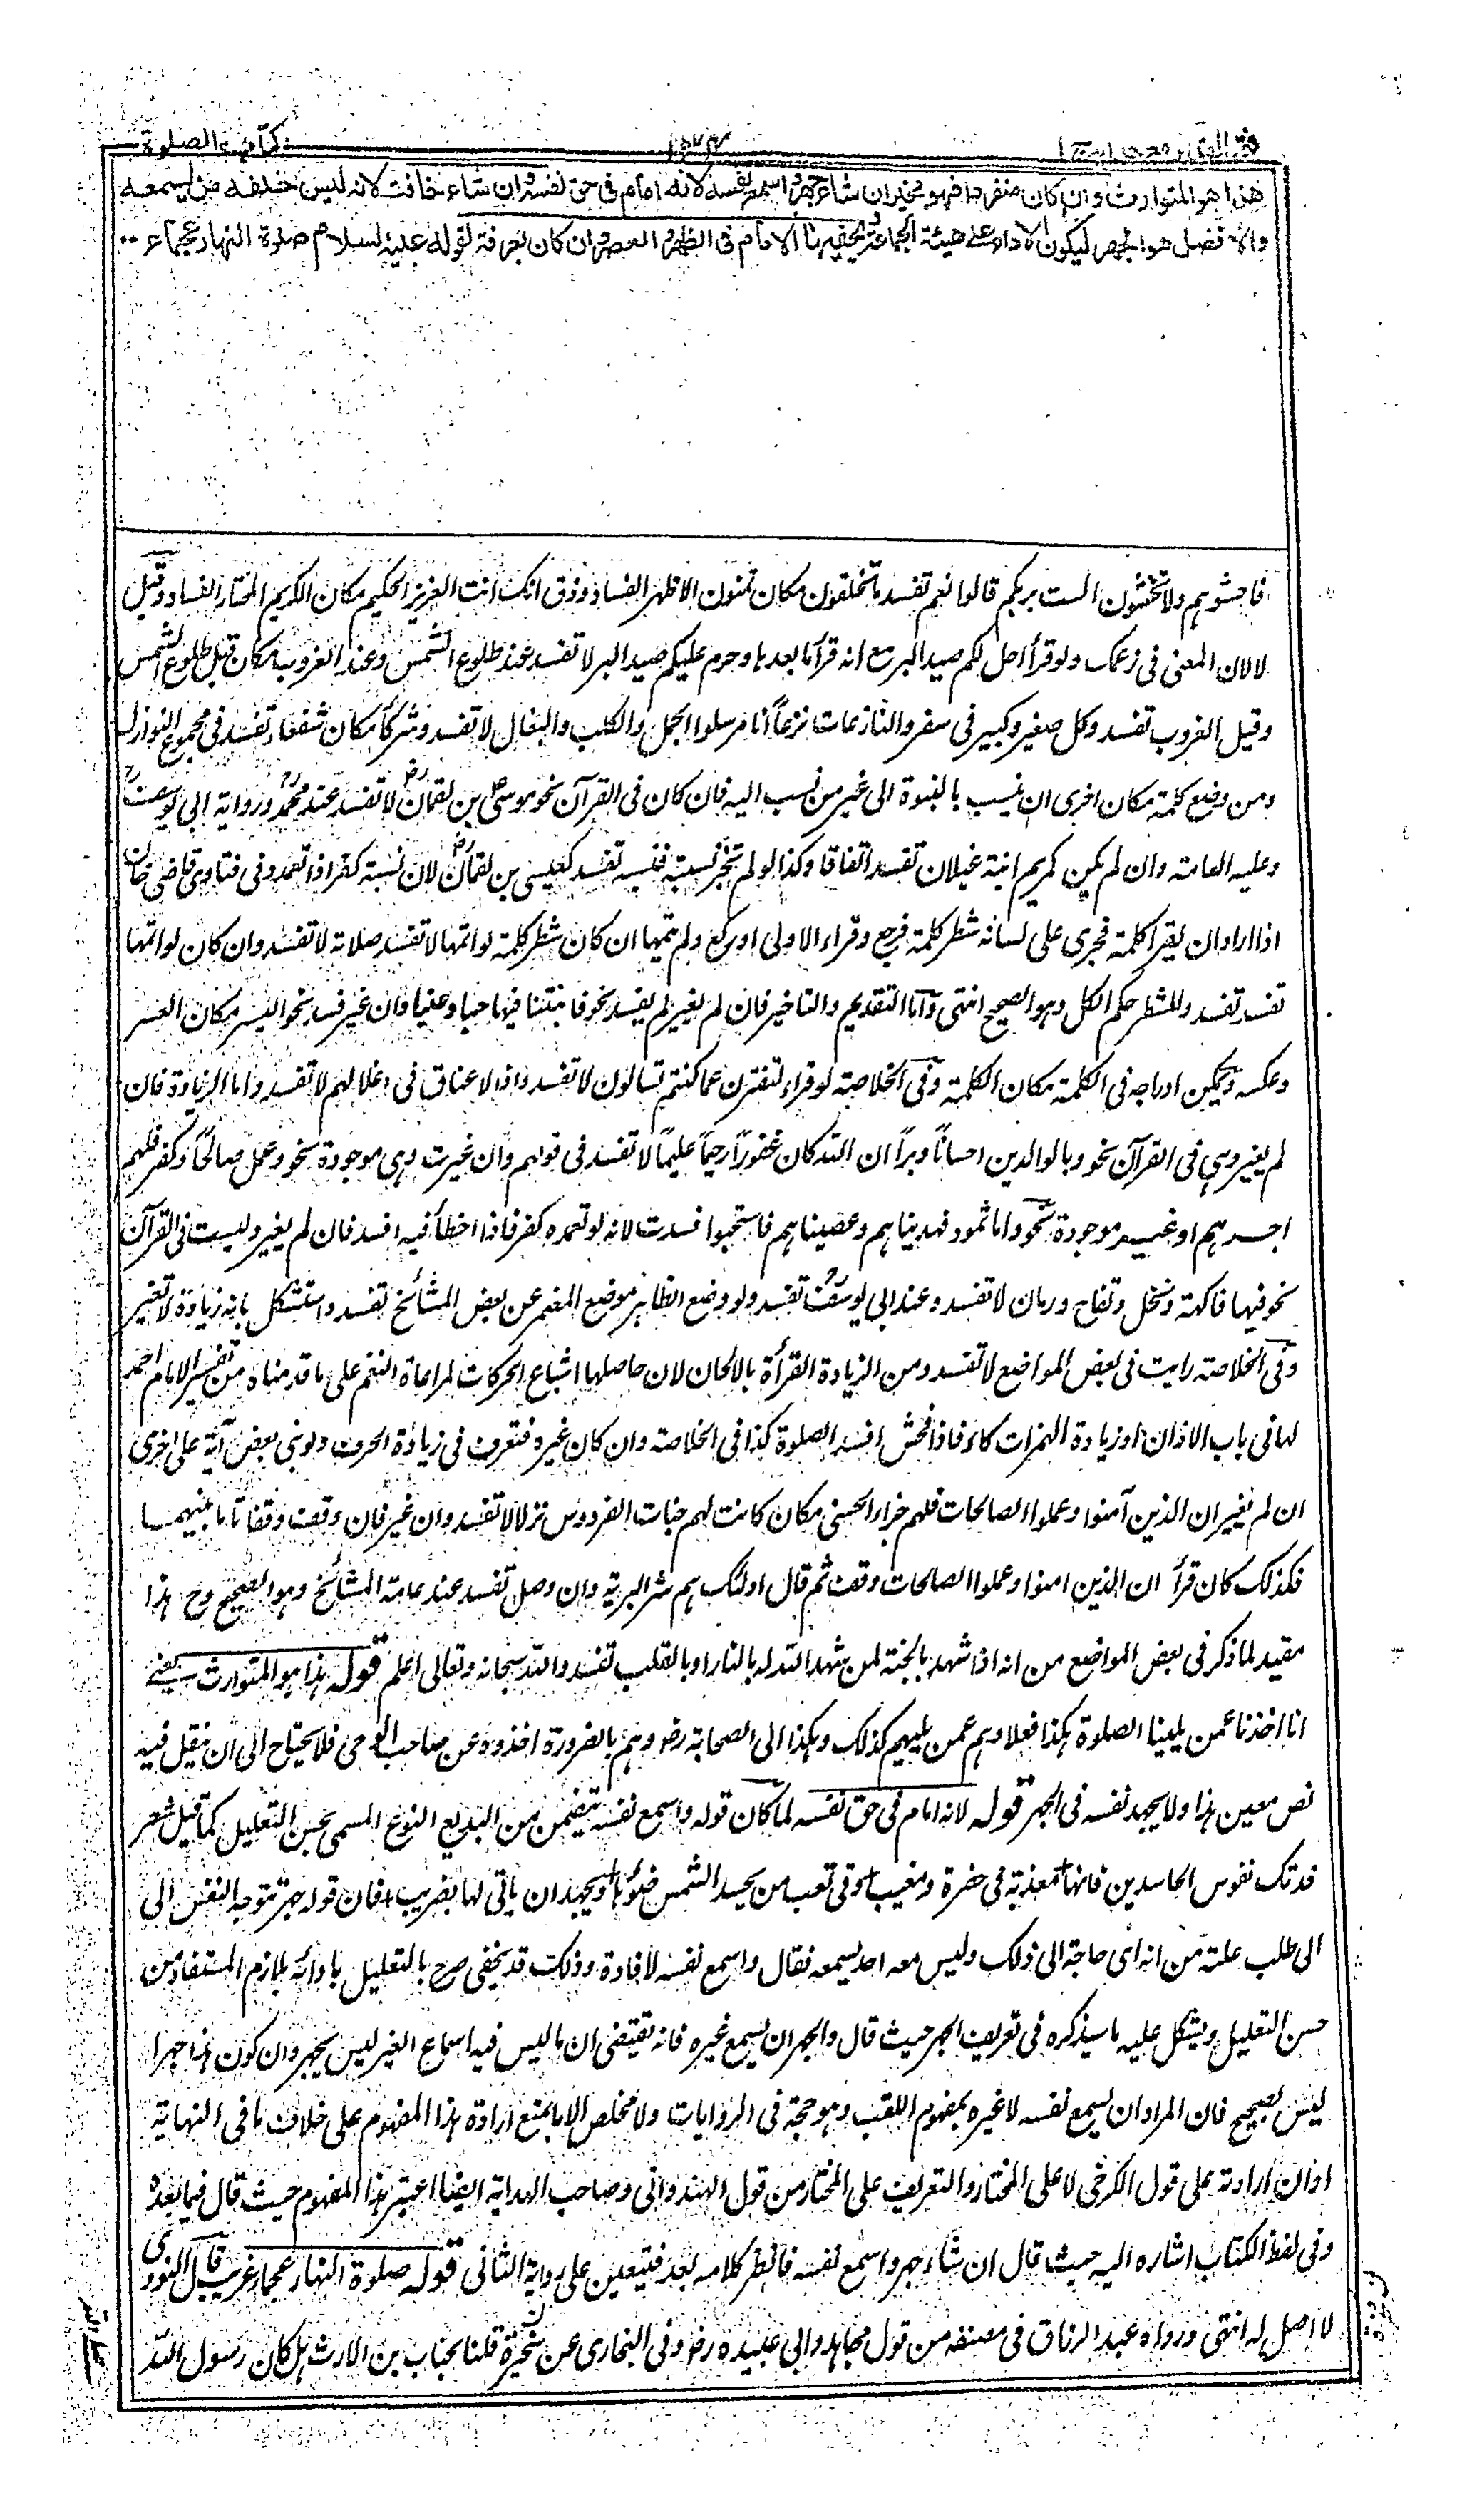 فتح القدير مع هداية ج ١
كتاب الصلوة
هذا هو المتوارث وان كان منفردا فهو مخير ان شاء جهر واسمع نفسه لانه امام فى حق نفسه وان شاء خافت لانه ليس خلفه من يسمعه
والافضل هو الجهر ليكون الاداء على هيئة الجماعة ويخفيها الامام فى الظهر والعصر وان كان بعرفة لقوله عليه السلام صلوة النهار عجماء
فاخشوهم ولا تخشون الست بربكم قالوا نعم تفسد ما تخلقون مكان تمنون الاظهر الفساد وذق انك انت العزيز الحكيم مكان الكريم المختار الفساد وقيل
لا لان المعنى فى زعمك ولو قرأ احل لكم صيد البر مع انه قرأ ما بعدها وحرم عليكم صيد البر لا تفسد عند طلوع الشمس وعند الغروب مكان قبل طلوع الشمس
وقبل الغروب تفسد وكل صغير وكبير فى سقر والنازعات نزعا انا مرسلوا الجمل والكلب والبغال لا تفسد وشركاء مكان شفعاء تفسد فى مجموع النوازل
ومن وضع كلمة مكان اخرى ان ينسب بالبنوة الى غير من نسب اليه فان كان فى القرآن نحو موسى بن لقمان لا تفسد عند محمد ورواية ابى يوسف
وعليه العامة وان لم يكن كمريم ابنة غيلان تفسد اتفاقا وكذا لو لم تجز نسبته فنسبه تفسد كعيسى بن لقمان لان نسبته كفر اذا تعمد وفى فتاوى قاضى خان
اذا اراد ان يقرأ كلمة فجرى على لسانه شطر كلمة فرجع وقراء الاولى او ركع ولم يتمها ان كان شطر كلمة لو اتمها لا تفسد صلاته لا تفسد وان كان لو اتمها
تفسد تفسد وللشطر حكم الكل وهو الصحيح انتهى واما التقديم والتاخير فان لم يغير لم يفسد نحو فانبتنا فيها حبا وعنبا وان غير فسد نحو اليسر مكان العسر
وعكسه ويمكن ادراجه فى الكلمة مكان الكلمة وفى الخلاصة لو قراء لتفترن عما كنتم تسالون لا تفسد واذ الاعناق فى اغلالهم لا تفسد واما الزيادة فان
لم يغير وهى فى القرآن نحو وبالوالدين احسانا وبرا ان الله كان غفورا رحيما عليما لا تفسد فى قولهم وان غيرت وهى موجودة نحو وعمل صالحا وكفر فلهم
اجرهم او غير موجودة نحو واما ثمود فهديناهم وعصيناهم فاستحبوا فسدت لانه لو تعمده كفر فاذا اخطأ فيه افسد فان لم يغير وليست فى القرآن
نحو فيها فاكهة ونخل وتفاح ورمان لا تفسد وعند ابى يوسف تفسد ولو وضع الظاهر موضع المضمر عن بعض المشائخ تفسد واستشكل بانه زيادة لا تغير
وفى الخلاصة رايت فى بعض المواضع لا تفسد ومن الزيادة القرأة بالالحان لان حاصلها اشباع الحركات لمراعاة النغم على ما قدمناه من تفسير الامام احمد
لها فى باب الاذان او زيادة الهمزات كاء فاذا فحش افسد الصلوة كذا فى الخلاصة وان كان غيره فتعرف فى زيادة الحرف ولو بنى بعض آية على اخرى
ان لم يغير ان الذين آمنوا وعملوا الصالحات فلهم جزاء الحسنى مكان كانت لهم جنات الفردوس نزلا لا تفسد وان غير فان وقف وقفا تاما بينهما
فكذلك كان قرأ ان الذين امنوا وعملوا الصالحات وقف ثم قال اولئك هم شر البرية وان وصل تفسد عند عامة المشائخ وهو الصحيح وح هذا
مقيد لما ذكر فى بعض المواضع من انه اذا شهد بالجنة لمن شهد الله له بالنار او بالقلب تفسد والله سبحانه وتعالى اعلم قوله هذا هو المتوارث يعنى
انا اخذنا عمن يلينا الصلوة هكذا فعلا وهم عمن يليهم كذلك وهكذا الى الصحابة رض وهم بالضرورة اخذوه عن صاحب الوحى فلا يحتاج الى ان ينقل فيه
نص معين هذا ولا يجهد نفسه فى الجهر قوله لانه امام فى حق نفسه لما كان قوله واسمع نفسه يتضمن من البديع النوع المسمى بحسن التعليل كما قيل شعر
فدتك نفوس الحاسدين فانها معذبة فى حضرة ومغيب وفى تعب من يحسد الشمس ضوئها ويجهد ان ياتى لها بضريب فان قوله جهر تتوجه النفس الى
الى طلب علته من انه اى حاجة الى ذلك وليس معه احد يسمعه فقال واسمع نفسه لافادة وذلك قد يخفى صرح بالتعليل بادائه بلازم المستفاد من
حسن التعليل ويشكل عليه ما سيذكره فى تعريف الجهر حيث قال والجهر ان يسمع غيره فانه يقتضى ان ما ليس فيه اسماع الغير ليس بجهر وان كون هذا جهرا
ليس بصحيح فان المراد ان يسمع نفسه لا غيره بمفهوم اللقب وهو حجة فى الروايات ولا مخلص الا بمنع ارادة هذا المفهوم على خلاف ما فى النهاية
اذ ان ارادته على قول الكرخى لا على المختار والتعريف على المختار من قول الهندوانى وصاحب الهداية ايضا اعتبر هذا المفهوم حيث قال فيما بعده
وفى لفظ الكتاب اشاره اليه حيث قال ان شاء جهر واسمع نفسه فانظر كلامه بعد فيتعين على رواية الثانى قوله صلوة النهار عجماء غريب قال النووى
لا اصل له انتهى ورواه عبد الرزاق فى مصنفه من قول مجاهد وابى عبيده رض وفى البخارى عن سخبرة قلنا لخباب بن الارث هل كان رسول الله